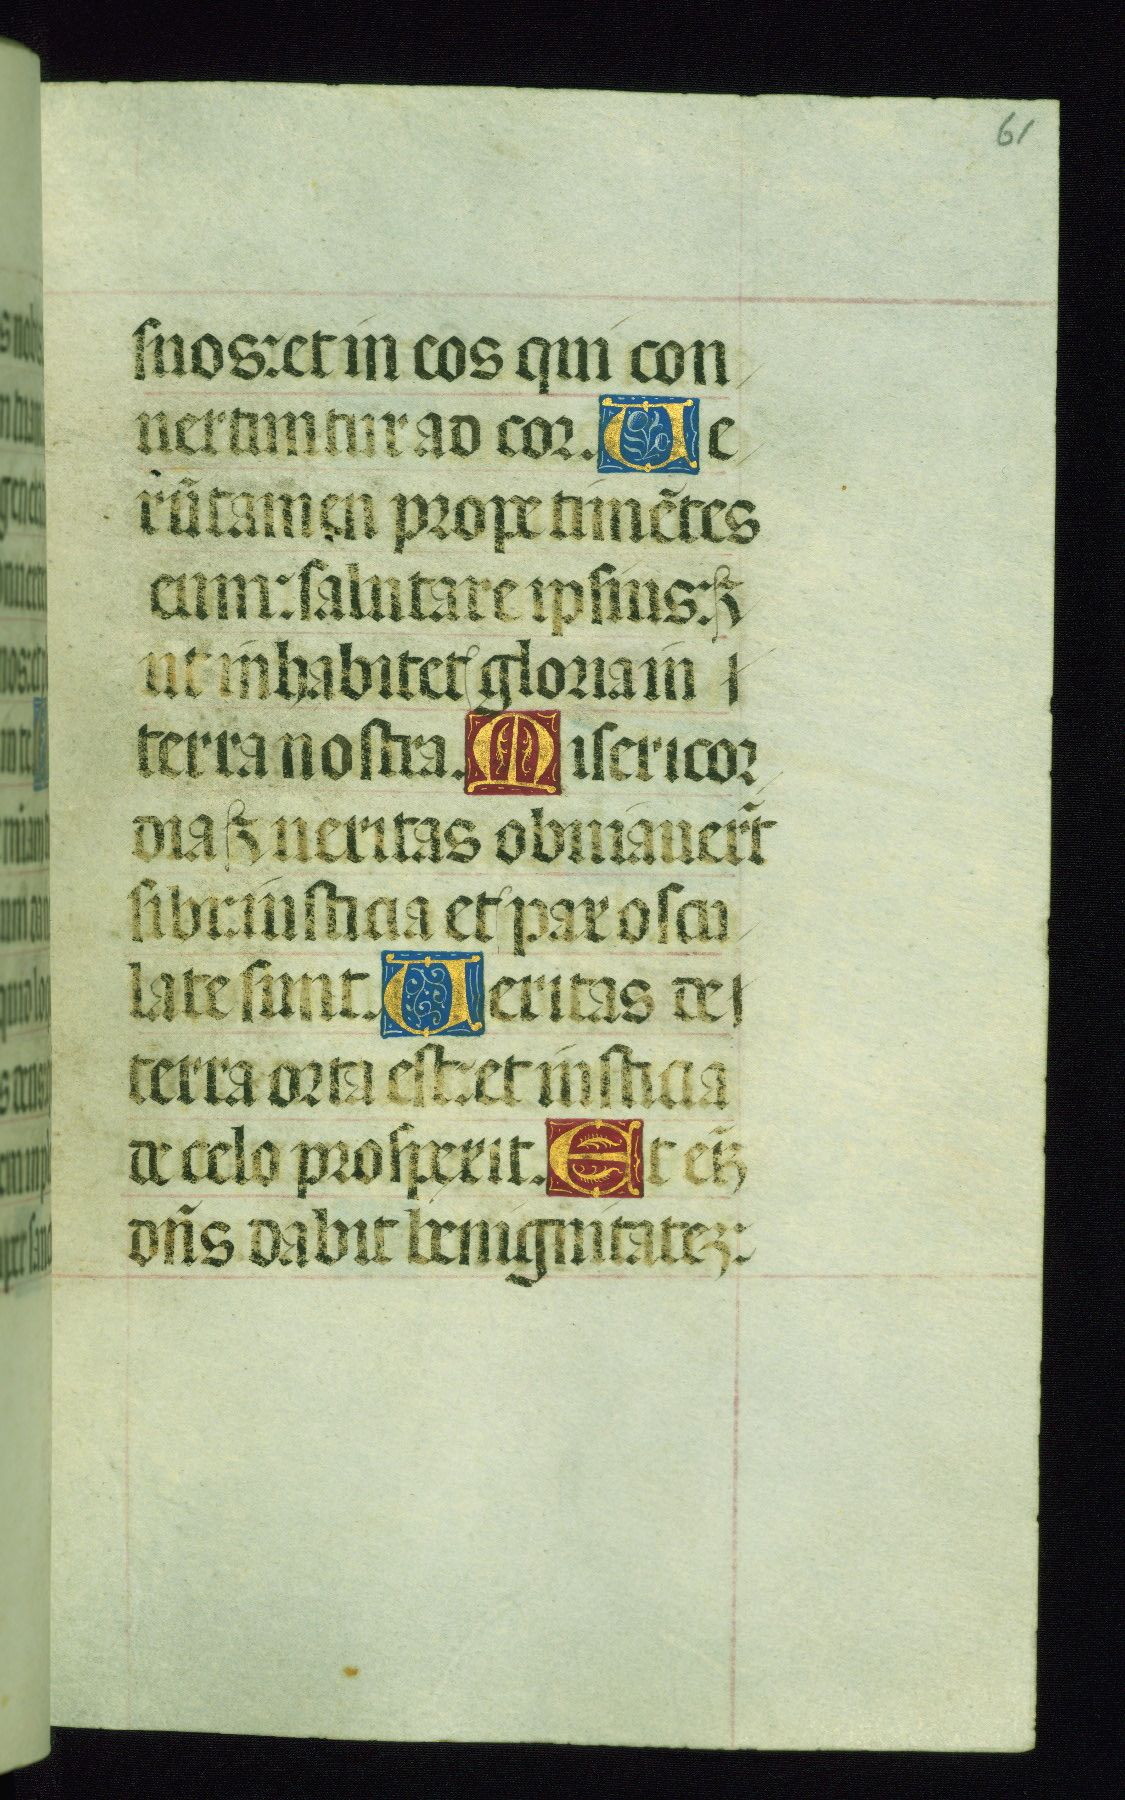 61
suos: et in eos qui con
uertuntur ad cor. Ue
rūtamen prope timētes
eum: salutare ipsius: ⁊
ut inhabitet gloria in
terra nostra. Misericor
dia ⁊ ueritas obuiauer̃t
sibi: iusticia et pax oscu
late sunt. Ueritas de
terra orta est: et iusticia
de celo prosperit. Et eñ
dñs dabit benignitateȝ: